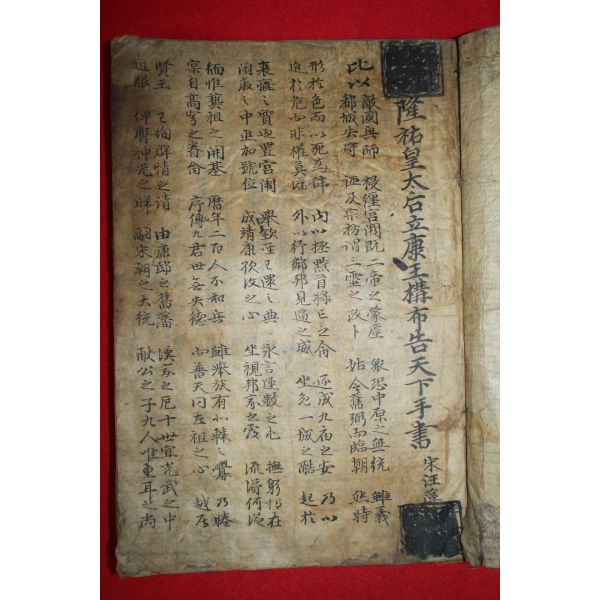 隆祐皇太后立康王構布告天下手書 宋汪藻
比以 敵國興師 祲纏宮闕既二帝之蒙塵 衆恐中原之無統 雖義
都城失守 誣及宗祊謂三靈之改卜 姑令舊弼而臨朝 然時
形於色而以死為辞 內以拯黔首将亡之命 遂成九庙之安 乃以
迫於危而非權莫濟 外以紓鄰邦見逼之威 坐免一城之酷 起於
衰癃之質迎置宮闈 擧欽聖已還之典 永言運數之屯 撫躬獨在
閑廢之中進加號位 成靖康欲復之心 坐視邦家之覆 流涕何從
緬惟藝祖之開基 曆年二百人不知兵 雖擧族有北轅之釁 乃眷
寔自高穹之眷命 序傳九君世無失德 而普天同左袒之心 越居
賢王 已徇群情之請 由康邸之舊藩 漢家之厄十世宜光武之中
近服 俾膺神器之歸 嗣宋朝之大統 献公之子九人唯重耳之尚